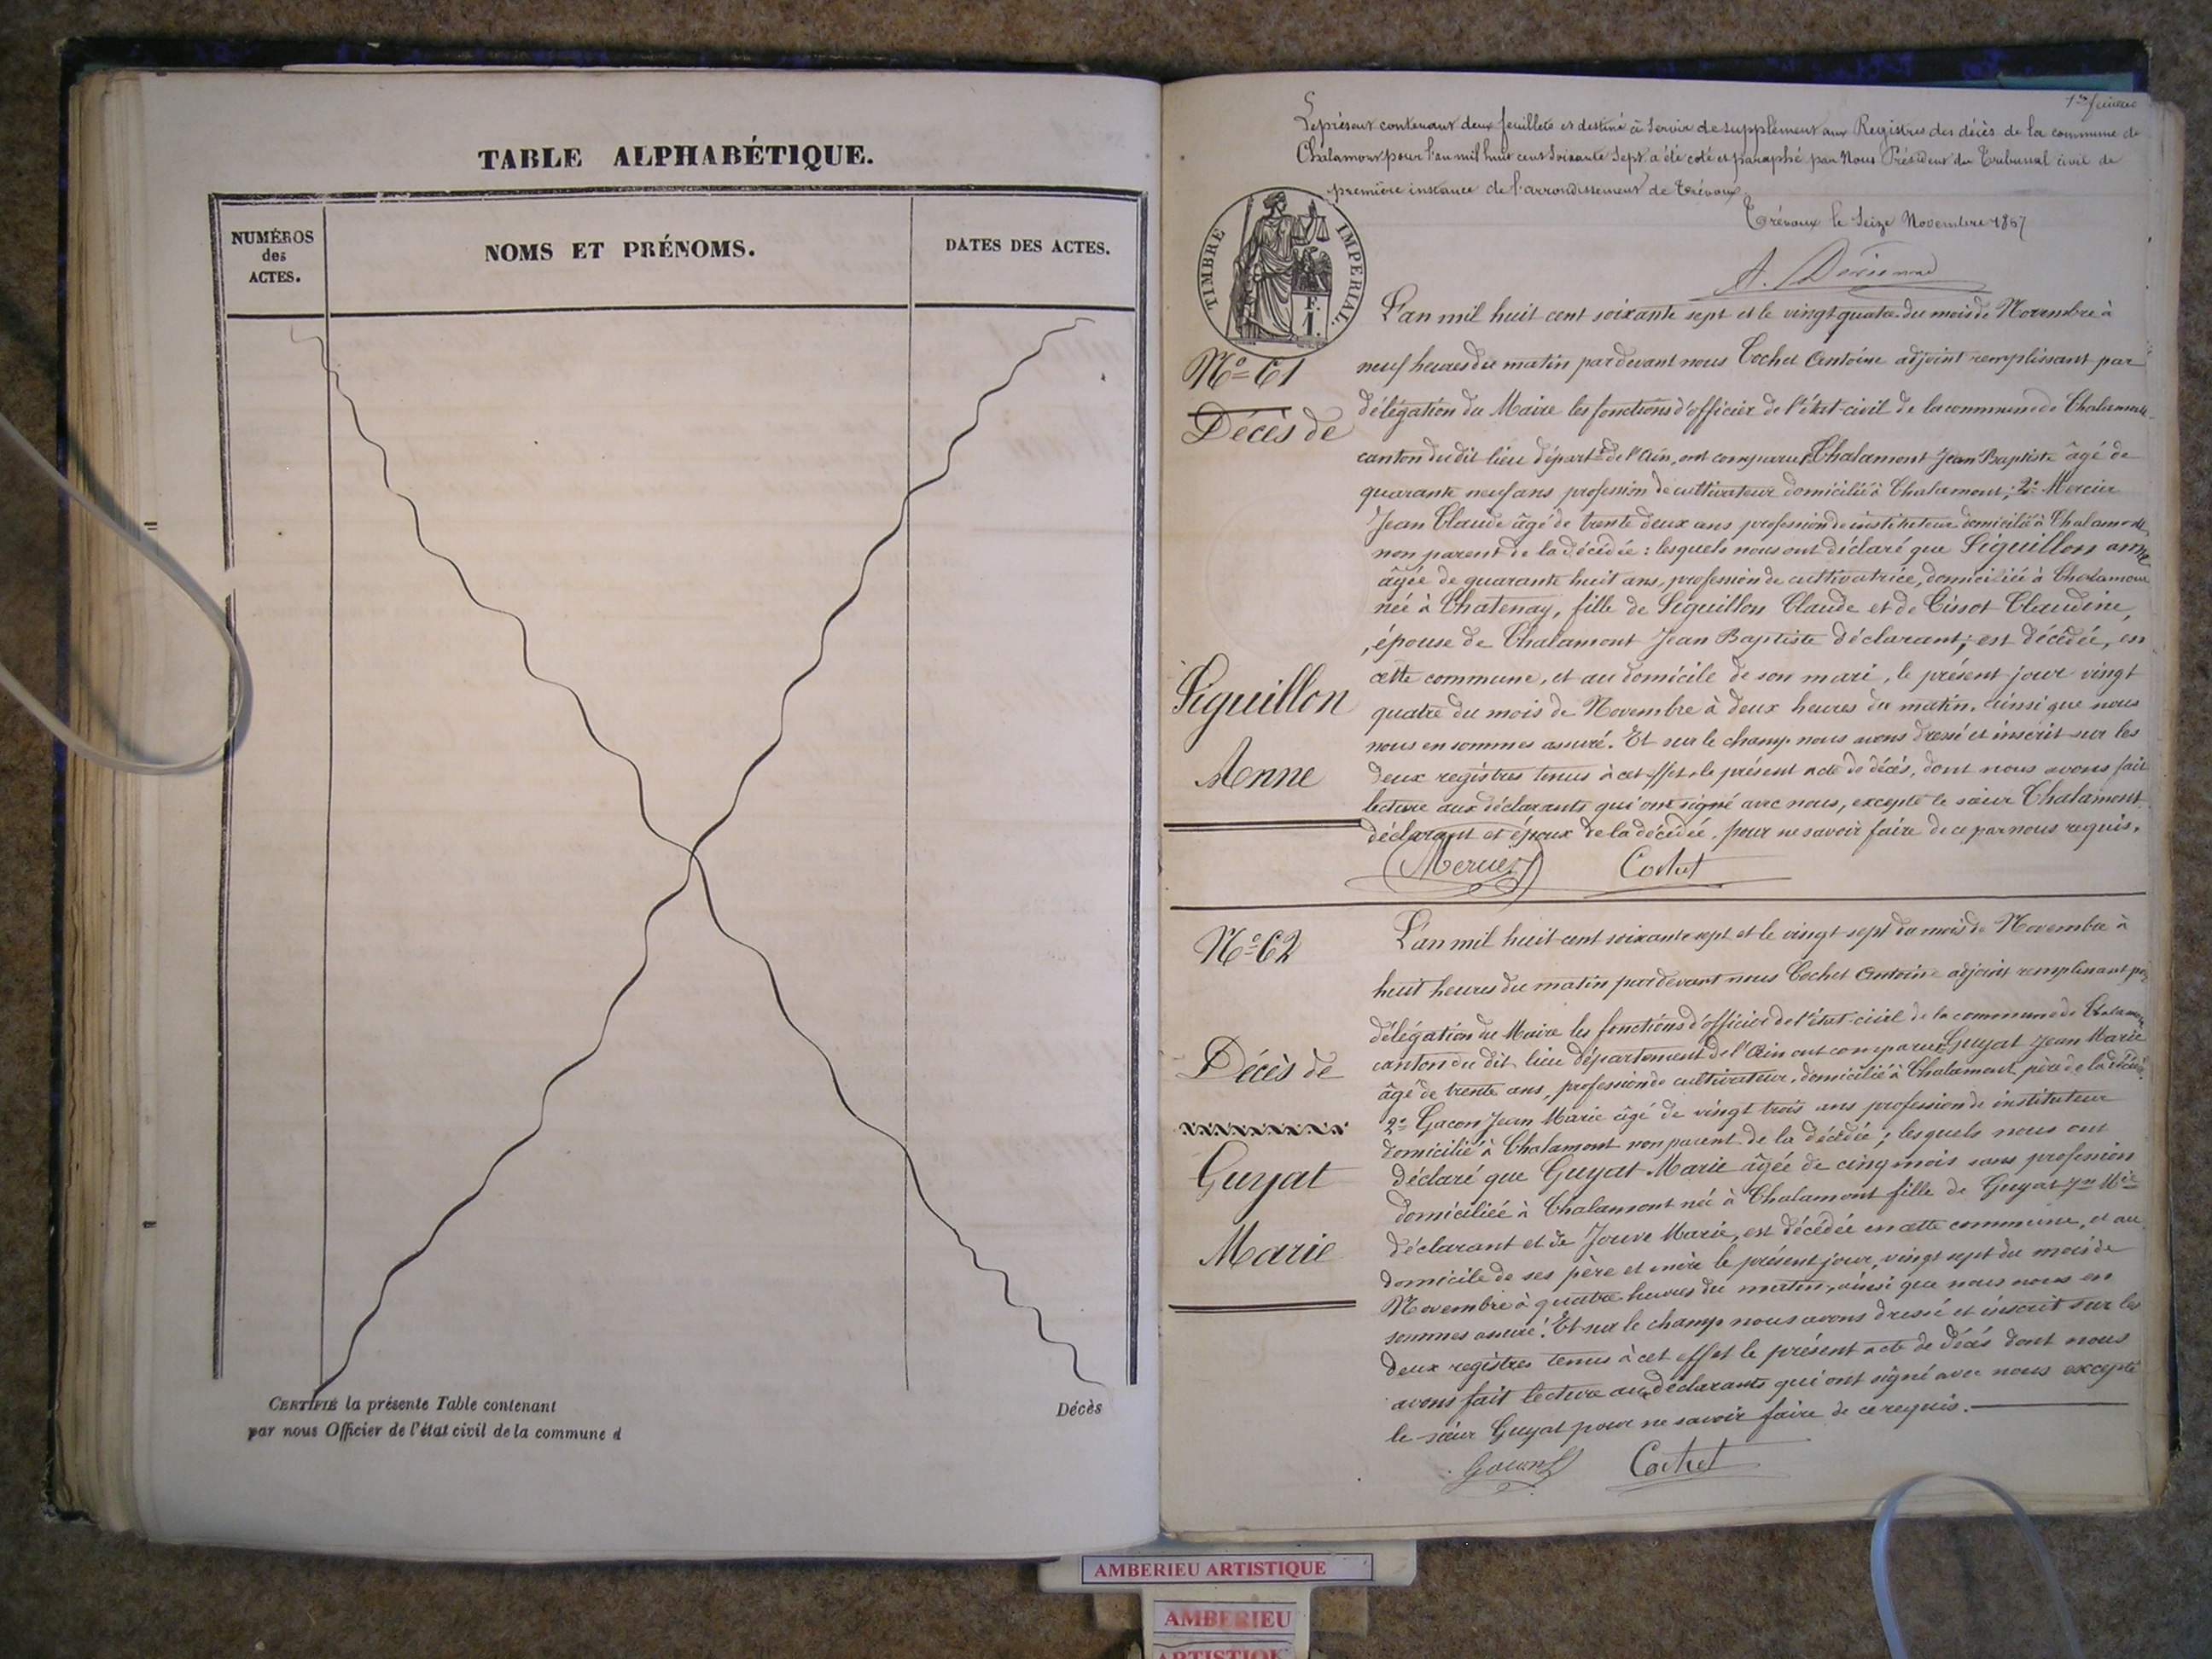 TABLE ALPHABÉTIQUE.
NUMÉROS
des
ACTES.
NOMS ET PRÉNOMS.
DATES DES ACTES.
CERTIFIÉ la présente Table contenant
Décès
par nous Officier de l'état civil de la commune d
Le présent contenant deux feuillets et destiné à servir de supplément aux Registres des décès de la commune de
Chalamont pour l'an mil huit cent soixante sept a été coté et paraphé par Nous Président du Tribunal civil de
première instance de l'arrondissement de Trévoux
Trévoux le Seize Novembre 1867
TIMBRE IMPERIAL.
F.
1.
L'an mil huit cent soixante sept et le vingt quatre du mois de Novembre à
No 61
neuf heures du matin pardevant nous Cochet Antoine adjoint remplissant par
Décès de
délégation du Maire les fonctions d'officier de l'état-civil de la commune de Chalamont
canton du dit lieu départt de l'Ain, ont comparu Chalamont Jean Baptiste âgé de
quarante neuf ans profession de cultivateur domicilié à Chalamont; 2o Mercier
Jean Claude âgé de trente deux ans profession de instituteur domicilié à Chalamont
non parent de la décédée: lesquels nous ont déclaré que Siguillon anne
âgée de quarante huit ans, profession de cultivatrice, domiciliée à Chalamont
née à Chatenay, fille de Siguillon Claude et de Tissot Claudine,
, épouse de Chalamont Jean Baptiste déclarant; est décédée, en
Siguillon
cette commune, et au domicile de son mari, le présent jour vingt
quatre du mois de Novembre à deux heures du matin, ainsi que nous
nous en sommes assuré. Et sur le champ nous avons dressé et inscrit sur les
Anne
deux registres tenus à cet effet le présent acte de décès, dont nous avons fait
lecture aux déclarants qui ont signé avec nous, excepté le sieur Chalamont
déclarant et époux de la décédée, pour ne savoir faire de ce par nous requis.
Mercier Cochet
No 62
L'an mil huit cent soixante sept et le vingt sept du mois de Novembre à
huit heures du matin pardevant nous Cochet Antoine adjoint remplissant par
délégation du Maire les fonctions d'officier de l'état-civil de la commune de Chalamont
Décès de
canton du dit lieu département de l'Ain ont comparu Guyat Jean Marie
âgé de trente ans, profession de cultivateur, domicilié à Chalamont, père de la décédée
2o Gacon Jean Marie âgé de vingt trois ans profession de instituteur
domicilié à Chalamont non parent de la décédée; lesquels nous ont
Guyat
déclaré que Guyat Marie âgée de cinq mois sans profession
domiciliée à Chalamont née à Chalamont fille de Guyat Jn Mie
Marie
déclarant et de Jouve Marie, est décédée en cette commune, et au
domicile de ses père et mère le présent jour, vingt sept du mois de
Novembre à quatre heures du matin, ainsi que nous nous en
sommes assuré. Et sur le champ nous avons dressé et inscrit sur les
deux registres tenus à cet effet le présent acte de décès dont nous
avons fait lecture aux déclarants qui ont signé avec nous excepté
le sieur Guyat pour ne savoir faire de ce requis.
Gacon Cochet
AMBERIEU ARTISTIQUE
AMBERIEU
ARTISTIQU